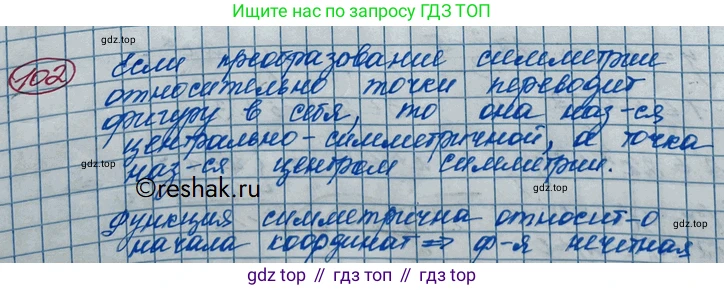 Ищите нас по запросу ГДЗ ТОП
gdz.top
102
Если преобразование симметрии
относительно точки переводит
gdz.top
фигуру в себя, то она наз-ся
центрально-симметричной, а точка
наз-ся центром симметрии.
©reshak.ru
gdz.top
Функция симметрична относит-о
начала координат => ф-я нечетная
gdz.top // гдз топ // gdz.top // гдз топ // gdz.top